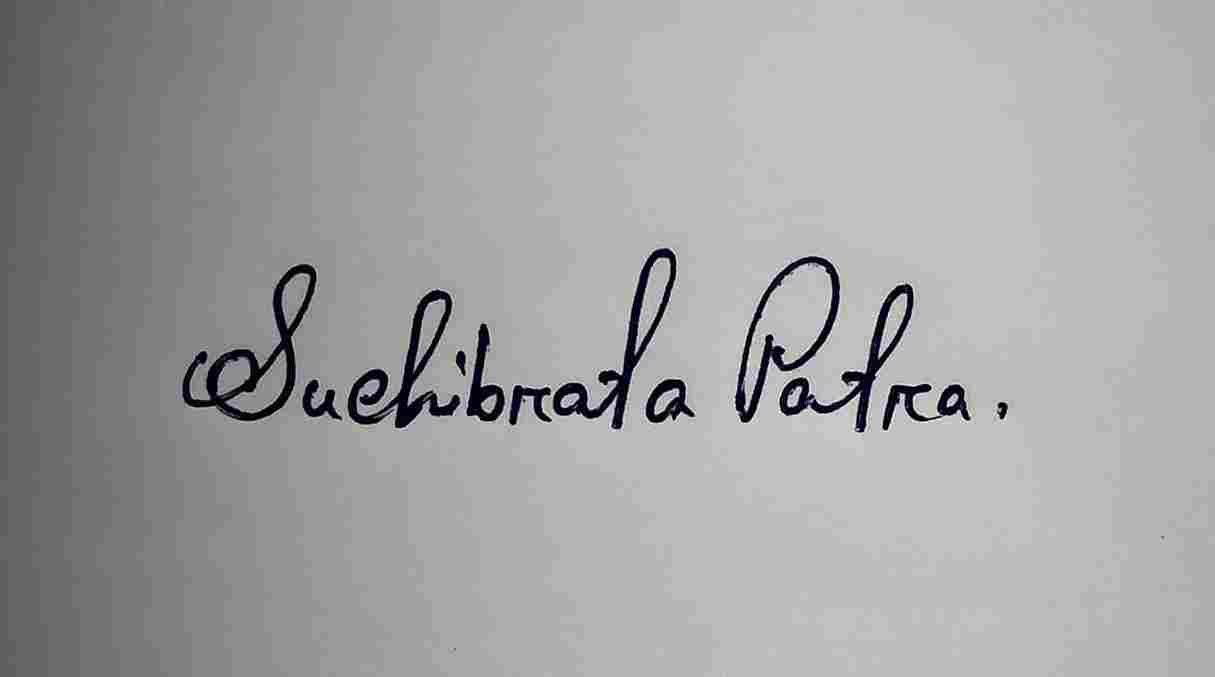 Suchibrata Patra.